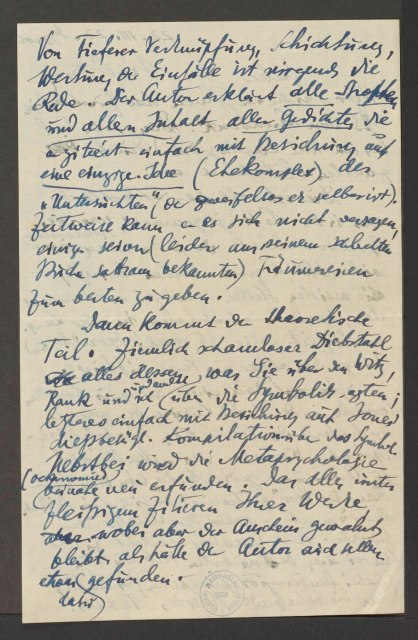 Von tieferer Verknüpfung, Schichtung,
Wertung der Einfälle ist nirgends die
Rede. Der Autor erklärt alle Strophen
und allen Inhalt aller Gedichte die
er zitiert einfach mit Beziehung auf
eine einzige Idee (Ehekomplex) des
"Untersuchten" (der zweifellos er selber ist).
Zeitweise kann er es sich nicht versagen,
einige seiner (leider aus seinem schlechten
Buche sattsam bekannten) Träumereien
zum besten zu geben.
Dann kommt der theoretische
Teil. Ziemlich schamloser Diebstahl
alles dessen, was Sie über den Witz,
Rank und ich (über die Symbolik sagten;
letzteres einfach mit Beziehung auf Jones'
Kompilation über das Symbol.
Nebstbei wird die Metapsychologie
(oekonomie)
beinahe neu erfunden. Das alles unter
fleißigem Zitieren Ihrer Werke
wobei aber der Anschein gewahrt
bleibt, als hätte der Autor all
etwas gefunden.